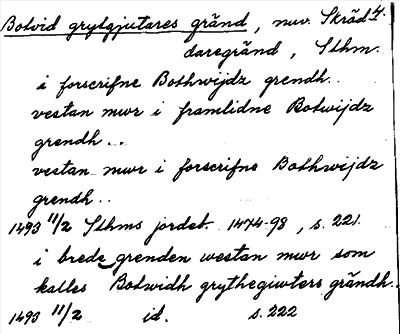 Botvid grytgjutares gränd, nuv. Skräd-
daregränd, Sthm.
i forscrifne Bothwijdz grendh..
vestan mwr i framlidne Botwijdz
grendh...
vestan mwr i forscrifne Bothwijdz
grendh..
1493 11/2 Sthms jordeb. 1474-98, s. 221.
i brede grenden westan mwr som
kalles Botwidh grythegiwters grändh..
1493 11/2 id. s. 222